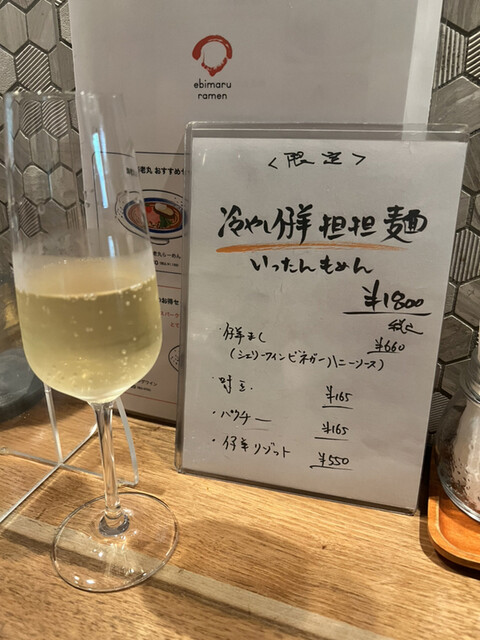 ebimaru
ramen
老丸 おすすめ
<限定>
冷やし仔羊担担麺
いったんもめん
¥1800
税込
・仔羊まし ¥660
(シェリーワインビネガーハニーソース)
・味玉 ¥165
・パクチー ¥165
・仔羊リゾット ¥550